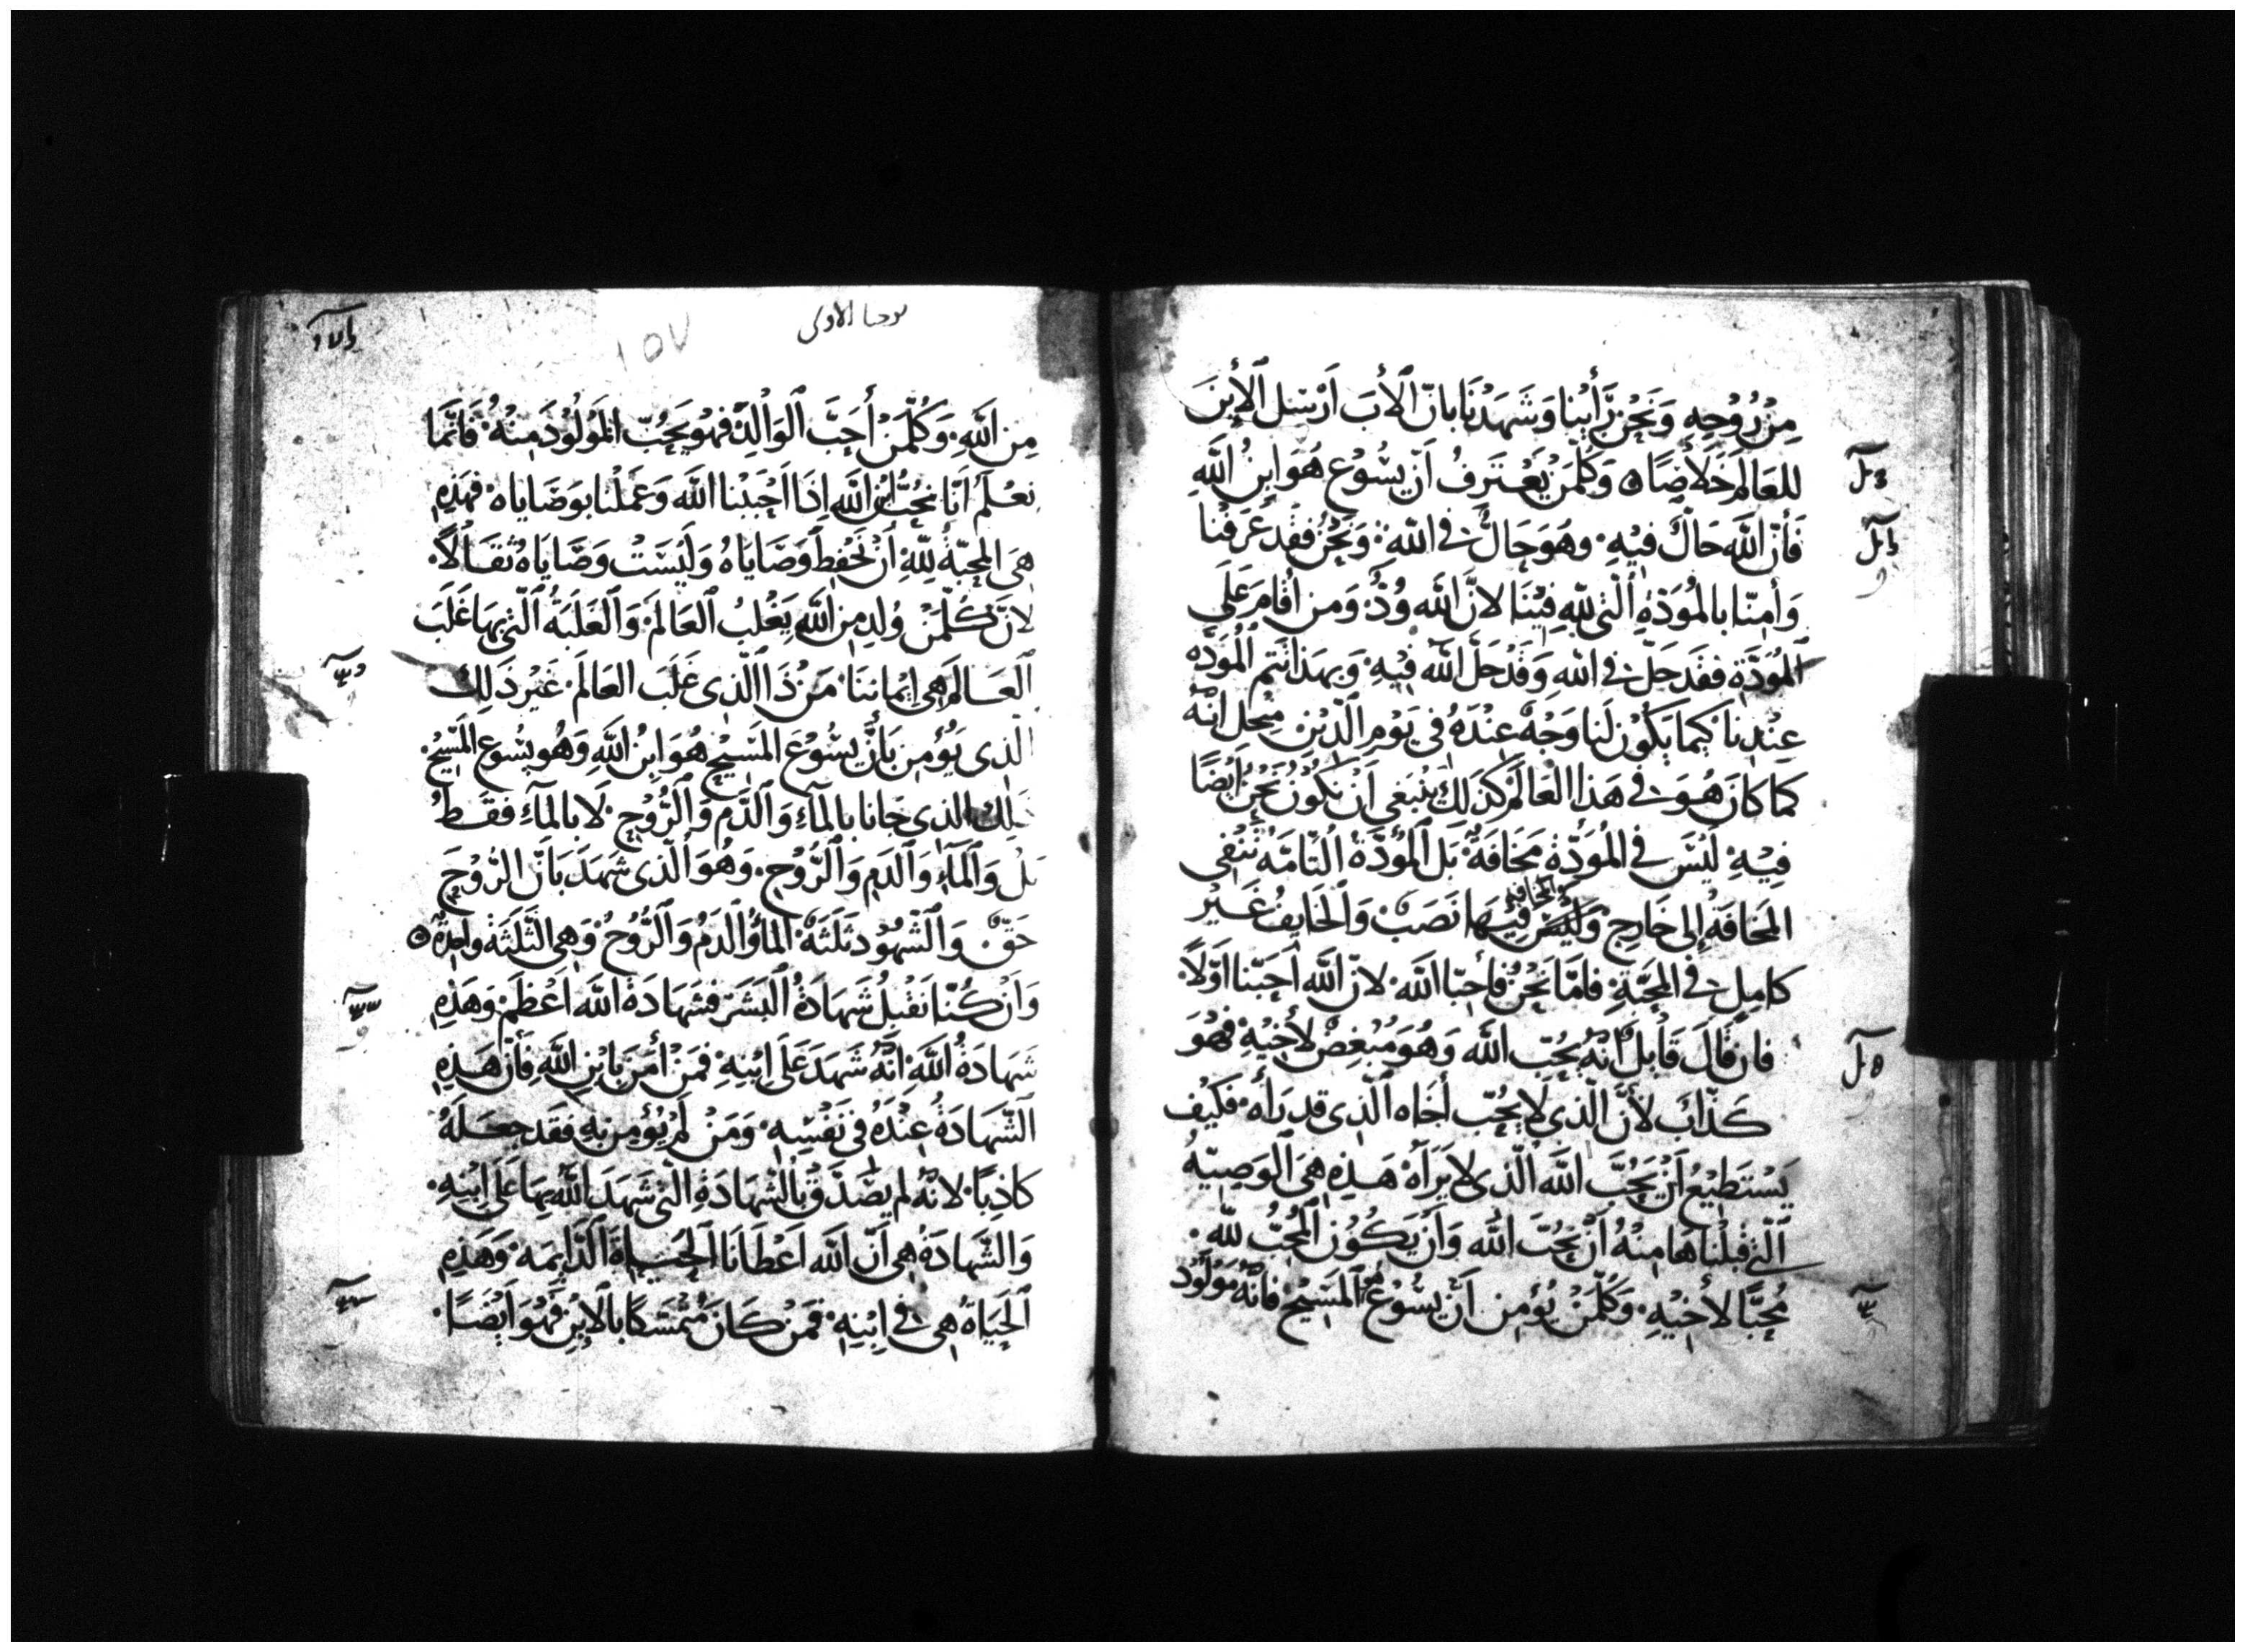 مِنْ رُوْحِهِ وَنَحْنُ رَأَيْنا وَشَهِدْنَا بانّ ٱلأبَ اَرْسَل ٱلإبنَ
للعَالم خَلاصًا ۞ وَكُلّمَنْ يَعْتَرفُ اَنّ يسُوْع هُوَ ابنُ اللَّه
فَأنّ اللَّه حَالّ فيْهِ ۰ وهُوَ حَالٌّ في اللَّهِ ۰ وَنَحْنُ فقد عَرَفْنا
وَأمنّا بالمُوَدّةِ ٱلّتى للَّهِ فِيْنَا لانَّ اللَّه وُدٌّ ۰ وَمن اقَامَ عَلَى
ٱلمُوَدَّةِ ففَد حَلّ في اللَّهِ وَقَدْ حَلَّ اللَّه فيْهِ ۰ وَبهَذا تتم ٱلْمُوَدّه
عِنْدنا ۰ كيما يَكُوْن لَنا وَجْهٌ عِنْدَهُ في يَوْمِ الّديْنِ مِنْ اجل انّهُ
كما كانَ هُوَ في هَذا العَالم كذلِكَ يَنْبَغي اَنْ نكُوْن نَحْنُ أيْضًا
فِيْهِ ۰ لَيْسَ في المُوَدّةِ مَخَافَةٌ ۰ بَل ٱلمُوَدّةُ التّامّه تَنْفى
المَخافَةُ إلى خَارِج ۰ وَالمخافه فيْهَا نَصَبٌ وَٱلخَايفُ غَيْر
كامِلٍ في المحَبّةِ ۰ فامّا نَحْنُ فأحِبّا اللَّه ۰ لانّ اللَّه اَحَبّنا اَوّلاً ۰
فان قَالَ قَايلٌ انّهُ يحُبّ اللَّه وَهُوَ مُبْغِضٌ لأخيْهِ فهُوَ
كَذّابٌ لأنَّ الّذي لايحُبّ أخَاه ٱلّذِي قد رَأه ۰ فكيْف
يَسْتَطيْعُ اَنْ يحُبَّ اللَّه الّذى لايَرَاَهُ هَذِهِ هِىَ ٱلوَصِيّهُ
ٱلّتى قبلْنَاهَا مِنْهُ أنْ نحُبَّ اللَّه وَاَنْ يَكُوْن ٱلمُحِبُّ للَّه ۰
مُحِبًّا لأخيْهِ ۰ وَكُلّمَنْ يُؤمِن اَنّ يسُوْعَ هُوَ المَسِيْح فانّهُ مَوْلُوْد
يوحنا الاولى
١٥٧
مِن اللَّهِ ۰ وَكُلّمَنْ أحَبَّ ٱلوَالِدَ فهُوَ يَحُبّ المَوْلُوْدَ مِنْهُ ۰ فَانّما
نعْلَم انّا نحُبُّ ابن اللَّه اذَا اَحْبَبْنا اللَّه وَعَملْنا بوَصَاياه ۰ فهَذِهِ
هِيَ المحَبّةُ للّهِ أنْ نَحْفظ وَصَايَاهُ وَلَيْسَتْ وَصَايَاهُ ثقَالاً ۰
لانّ كُلّمَنْ وُلدِ من اللَّه يَغْلبُ ٱلعَالمَ ۰ وَٱلْغَلبَةُ ٱلّتى بهَا غَلَبَ
ٱلعَالم هِى ايماننَا ۰ مَنْ ذَا الّذى غَلَب العَالمَ ۰ غيْر ذَلِكَ
الّذى يؤُمِن بَأنّ يسُوْعَ المَسيْح هُوَ ابنُ اللَّهِ وَهُو يسُوع المَسيْح ۰
ذلك الذي جَانا بالمآءِ وَٱلدَّم وَٱلرُّوْح ۰ لَا بالمآءِ فقَطْ
بَلْ وَٱلمَآءِ وَٱلدَمِ وَٱلرُّوْح ۰ وهُوَ ٱلّذى شَهِدَ بَانّ الرُّوْحَ
حَقّ ۰ وَٱلشّهُوْد ثَلَثَةٌ ۰ المآءُ وَٱلدَمُ وَٱلرُّوْحُ وَهِى الثَّلَثَةُ واحِدةٌ ۞
وَاَنْ كُنّا نَقْبلُ شَهَادَةُ ٱلبَشَرَ فشَهَادَةُ اللَّه اَعْظمُ ۰ وَهَذِهِ
شَهَادَةُ اللَّهَ ۰ انّهُ شَهِدَ عَلَى ابْنهِ ۰ فمَنْ أمَنَ بابْنِ اللَّهِ فَانّ هَذِهِ
الشّهَادَةُ عِنْدَهُ في نَفْسِهِ ۰ وَمَنْ لَمْ يؤُمِن بهِ فقَد جعَلهُ
كاذِبًا ۰ لانّهُ لم يصَدّقْ بالشّهَادَةِ الّتى شَهِدَ اللَّهُ بهَا عَلى ابْنهِ ۰
وَالشّهَادَةُ هِى اَنّ اللَّه اَعْطانَا ٱلحَيَاةُ ٱلدّايمَه ۰ وَهَذِهِ
ٱلحَيَاةُ هِى في اِبْنهِ ۰ فمَنْ كَانَ مُتمَسّكًا بالإبْنِ فهُوَ اَيْضًا ۰